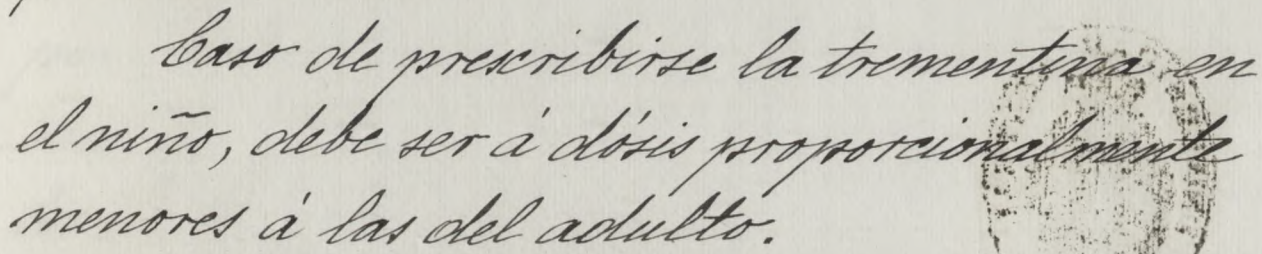 Caso de prescribirse la trementina en
el niño, debe ser á dósis proporcionalmente
menores á las del adulto.